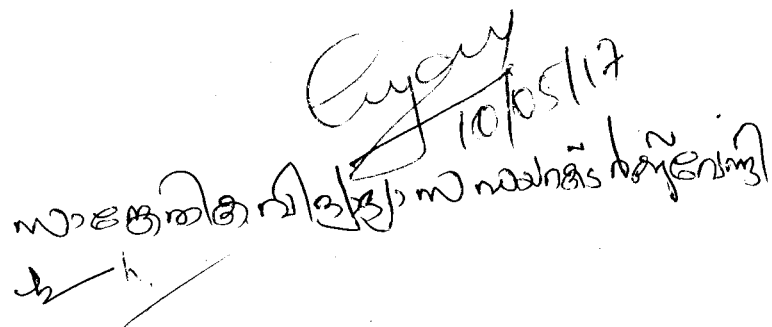 10/05/17
സാങ്കേതിക വിദ്യാഭ്യാസ ഡയറക്ടർക്കുവേണ്ടി